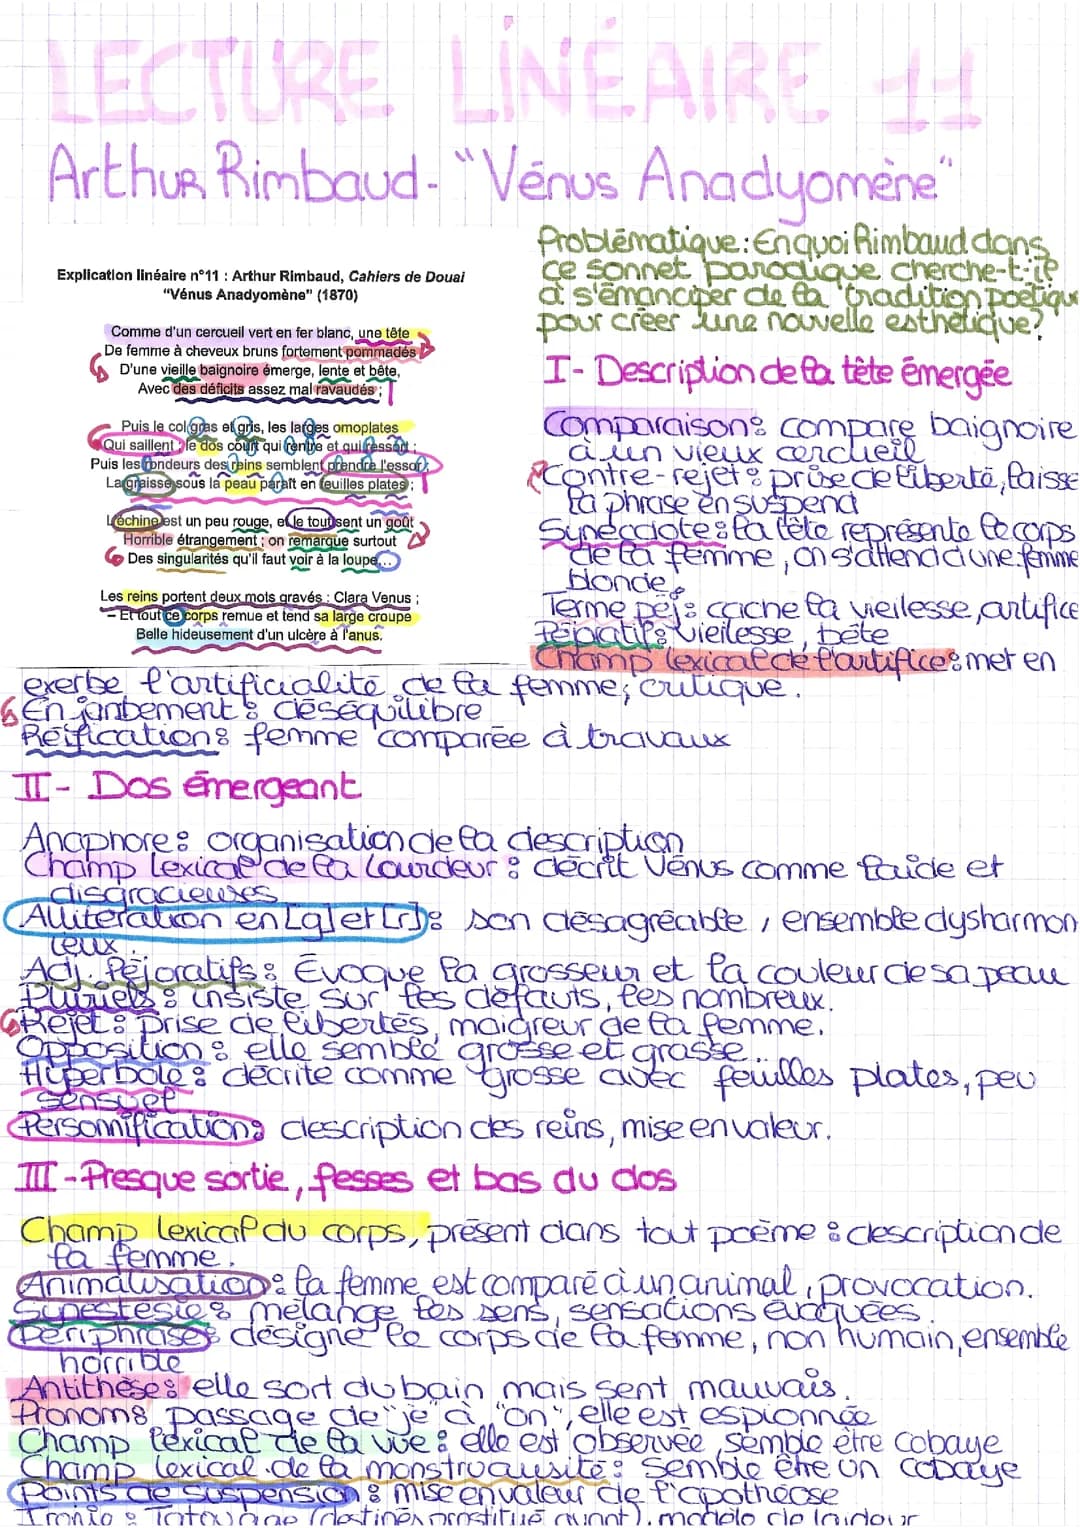 LECTURE LINÉAIRE 11
Arthur Rimbaud - "Vénus Anadyomène"
Problématique : En quoi Rimbaud dans
ce sonnet parodique cherche-t-il
à s'émanciper de la tradition poétique
pour créer une nouvelle esthétique?
Explication linéaire n°11 : Arthur Rimbaud, Cahiers de Douai
"Vénus Anadyomène" (1870)
Comme d'un cercueil vert en fer blanc, une tête
De femme à cheveux bruns fortement pommadés
D'une vieille baignoire émerge, lente et bête,
Avec des déficits assez mal ravaudés ;
Puis le col gras et gris, les larges omoplates
Qui saillent ; le dos court qui rentre et qui ressort ;
Puis les rondeurs des reins semblent prendre l'essor ;
La graisse sous la peau paraît en feuilles plates ;
L'échine est un peu rouge, et le tout sent un goût
Horrible étrangement ; on remarque surtout
Des singularités qu'il faut voir à la loupe...
Les reins portent deux mots gravés : Clara Venus ;
– Et tout ce corps remue et tend sa large croupe
Belle hideusement d'un ulcère à l'anus.
I- Description de la tête émergée
Comparaison : compare baignoire
à un vieux cercueil
Contre-rejet : prise de liberté, laisse
la phrase en suspend
Synecdote : la tête représente le corps
de la femme, on s'attend à une femme
blonde.
Terme péj : cache la vieilesse, artifice
Péjoratif : vieilesse, bête
Champ lexical de l'artifice : met en
exerbe l'artificialité de la femme, critique.
Enjanbement : déséquilibre
Réification : femme comparée à travaux
II- Dos émergeant
Anaphore : organisation de la description
Champ lexical de la lourdeur : décrit Vénus comme laide et
disgracieuses
Allitération en [g] et [r] : son désagréable, ensemble dysharmon
ieux.
Adj. Péjoratifs : Évoque la grosseur et la couleur de sa peau
Pluriels : insiste sur les défauts, les nombreux.
Rejet : prise de libertés, maigreur de la femme.
Opposition : elle semble grosse et grasse...
Hyperbole : décrite comme grosse avec feuilles plates, peu
sensuel
Personnification : description des reins, mise en valeur.
III-Presque sortie, fesses et bas du dos
Champ lexical du corps, présent dans tout poème : description de
la femme.
Animalisation : la femme est comparé à un animal, provocation.
Synestesie : mélange les sens, sensations évoquées.
Périphrase : désigne le corps de la femme, non humain, ensemble
horrible
Antithèse : elle sort du bain mais sent mauvais.
Pronoms passage de "je" à "on", elle est espionnée
Champ lexical de la vue : elle est observée, semble être cobaye
Champ lexical de la monstruausité : semble être un cobaye
Points de suspension : mise en valeur de l'apothéose
Ironie : Tatouage (destinés prostitué avant), modèle de laideur